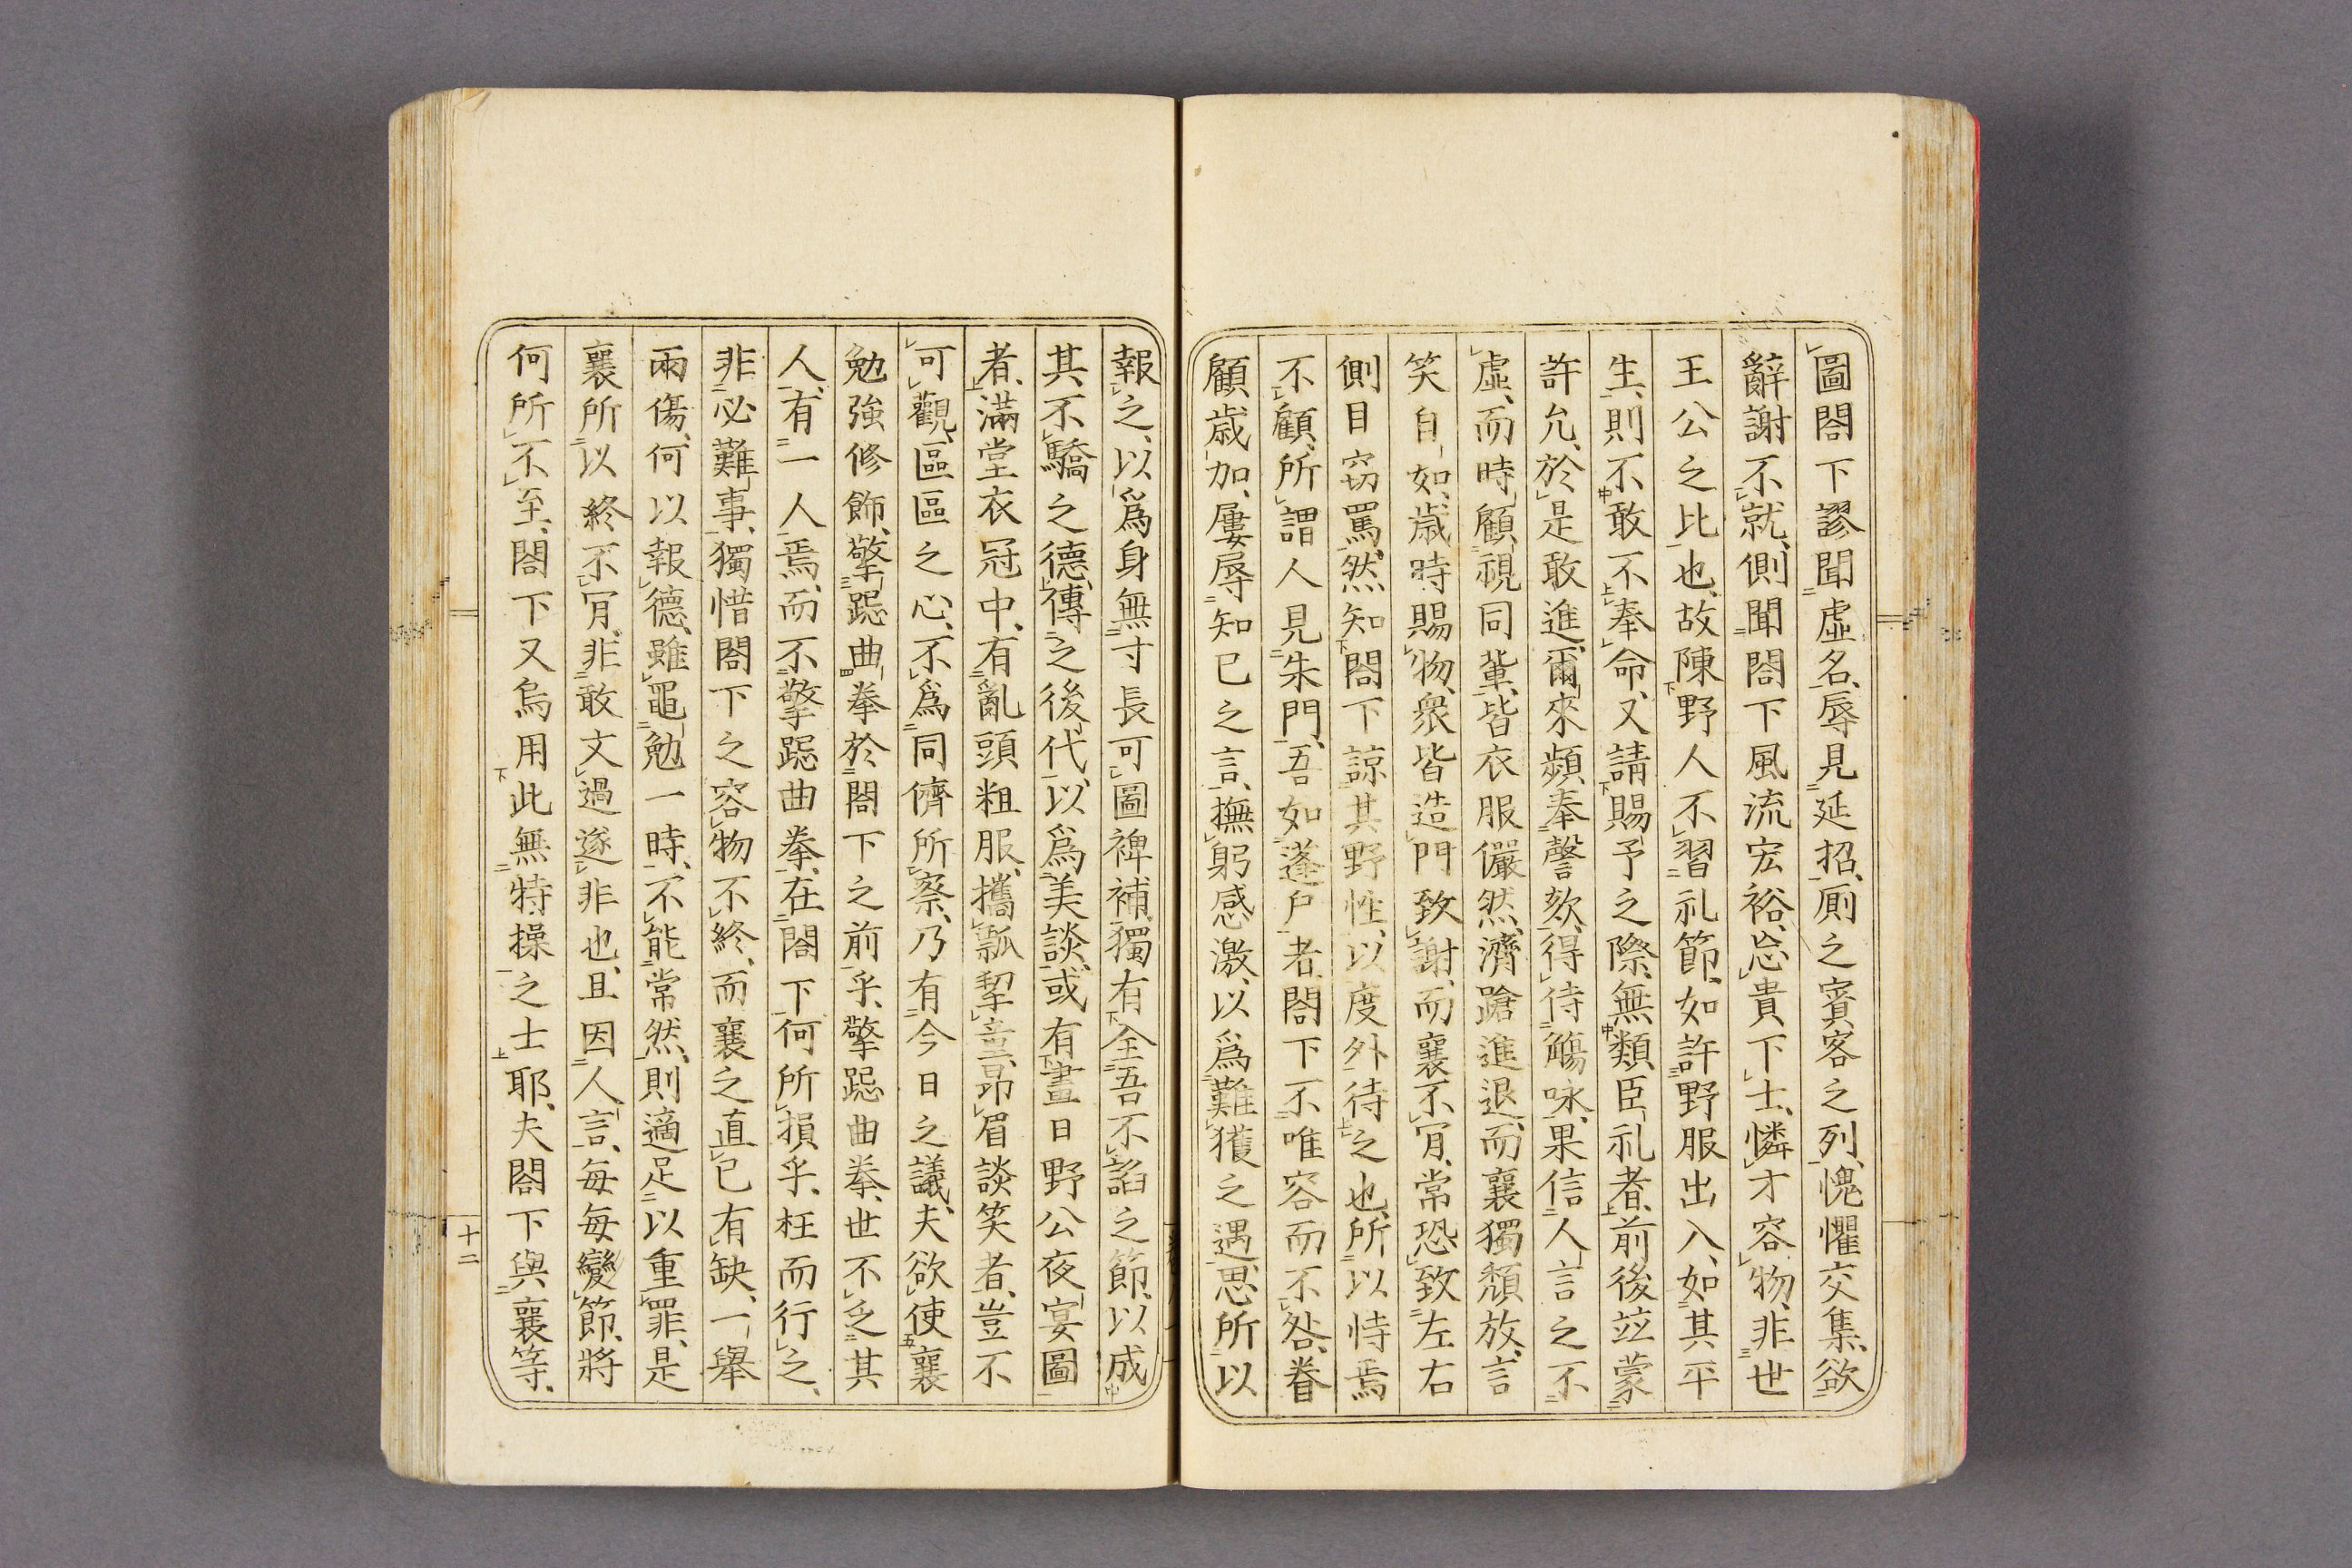 圖閤下謬聞虛名、辱見延招、厠之賓客之列、愧懼交集、欲
辭謝不就、側聞閤下風流宏裕、忘貴下士、憐才容物、非世
王公之比也、故陳野人不習礼節、如許野服出入、如其平
生、則不敢不奉命、又請賜予之際、無類臣礼者、前後竝蒙
許允、於是敢進、爾來頻奉謦欬、得侍觴咏、果信人言之不
虛、而時顧視同輩、皆衣服儼然、濟蹌進退、而襄獨頹放、言
笑自如、歳時賜物、衆皆造門致謝、而襄不肎、常恐致左右
側目窃罵、然知閤下諒其野性、以度外待之也、所以恃焉
不顧、所謂人見朱門、吾如蓬戶者、閤下不唯容而不咎、眷
顧歳加、屢辱知已之言、撫躬感激、以爲難獲之遇、思所以
報之、以爲身無寸長可圖裨補、獨有全吾不諂之節、以成
其不驕之德、傳之後代、以爲美談、或有畫日野公夜宴圖
者、滿堂衣冠中、有亂頭粗服、攜瓢挈壺、昻眉談笑者、豈不
可觀、區區之心、不爲同儕所察、乃有今日之議、夫欲使襄
勉強修飾、擎跽曲拳於閤下之前乎、擎跽曲拳、世不乏其
人、有一人焉、而不擎跽曲拳、在閤下何所損乎、枉而行之、
非必難事、獨惜閤下之容物不終、而襄之直已有缺、一舉
兩傷、何以報德、雖黽勉一時、不能常然、則適足以重罪、是
襄所以終不肎、非敢文過遂非也、且因人言、每每變節、將
何所不至、閤下又烏用此無特操之士耶、夫閤下與襄等、
十二